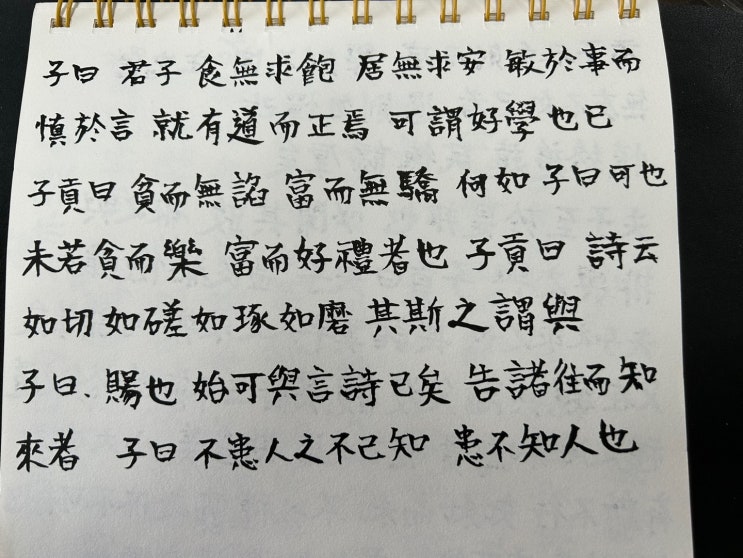 子曰 君子 食無求飽 居無求安 敏於事而
慎於言 就有道而正焉 可謂好學也已
子貢曰 貧而無諂 富而無驕 何如 子曰可也
未若貧而樂 富而好禮者也 子貢曰 詩云
如切如磋如琢如磨 其斯之謂與
子曰、賜也 始可與言詩已矣 告諸往而知
來者 子曰 不患人之不己知 患不知人也